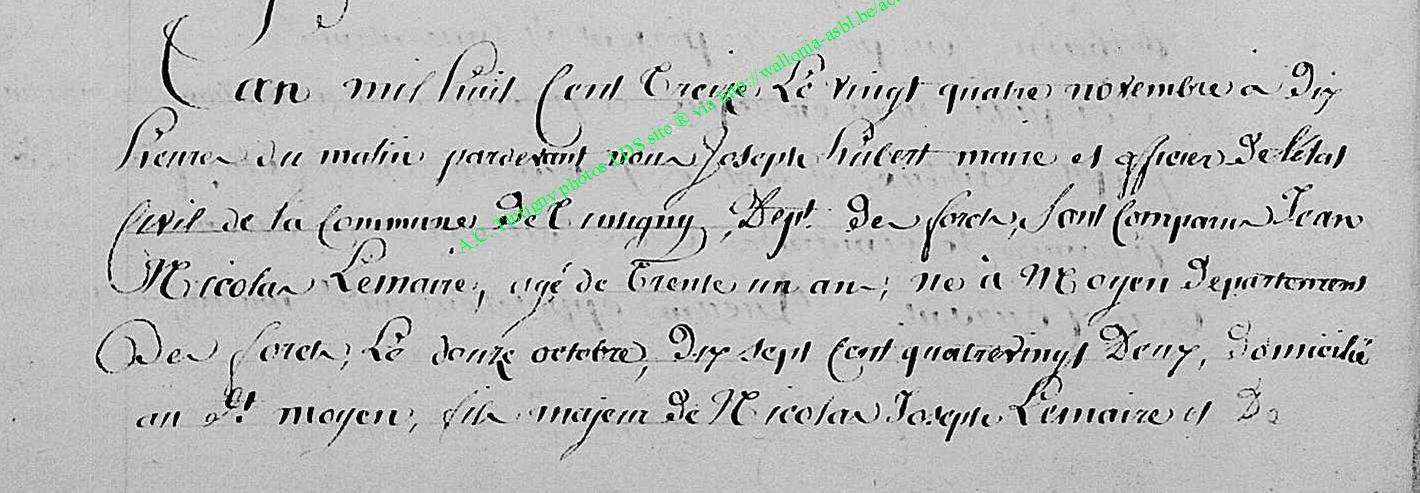 L'an mil huit Cent Treize Le vingt quatre novembre a Dix
heures du matin pardevant nous Joseph hubert maire et officier De l'état
Civil de la Commune De Tintigny, Dept. Des forets, sont Comparus Jean
Nicolas Lemaire, agé de Trente un ans, né à Moyen Departement
Des forets, Le douze octobre, dix sept Cent quatrevingt Deux, domicilié
au dt. moyen, fils majeur de Nicolas Joseph Lemaire et De
A.C. Tintigny photos LDS site ® via http://wallonia-asbl.be/ac